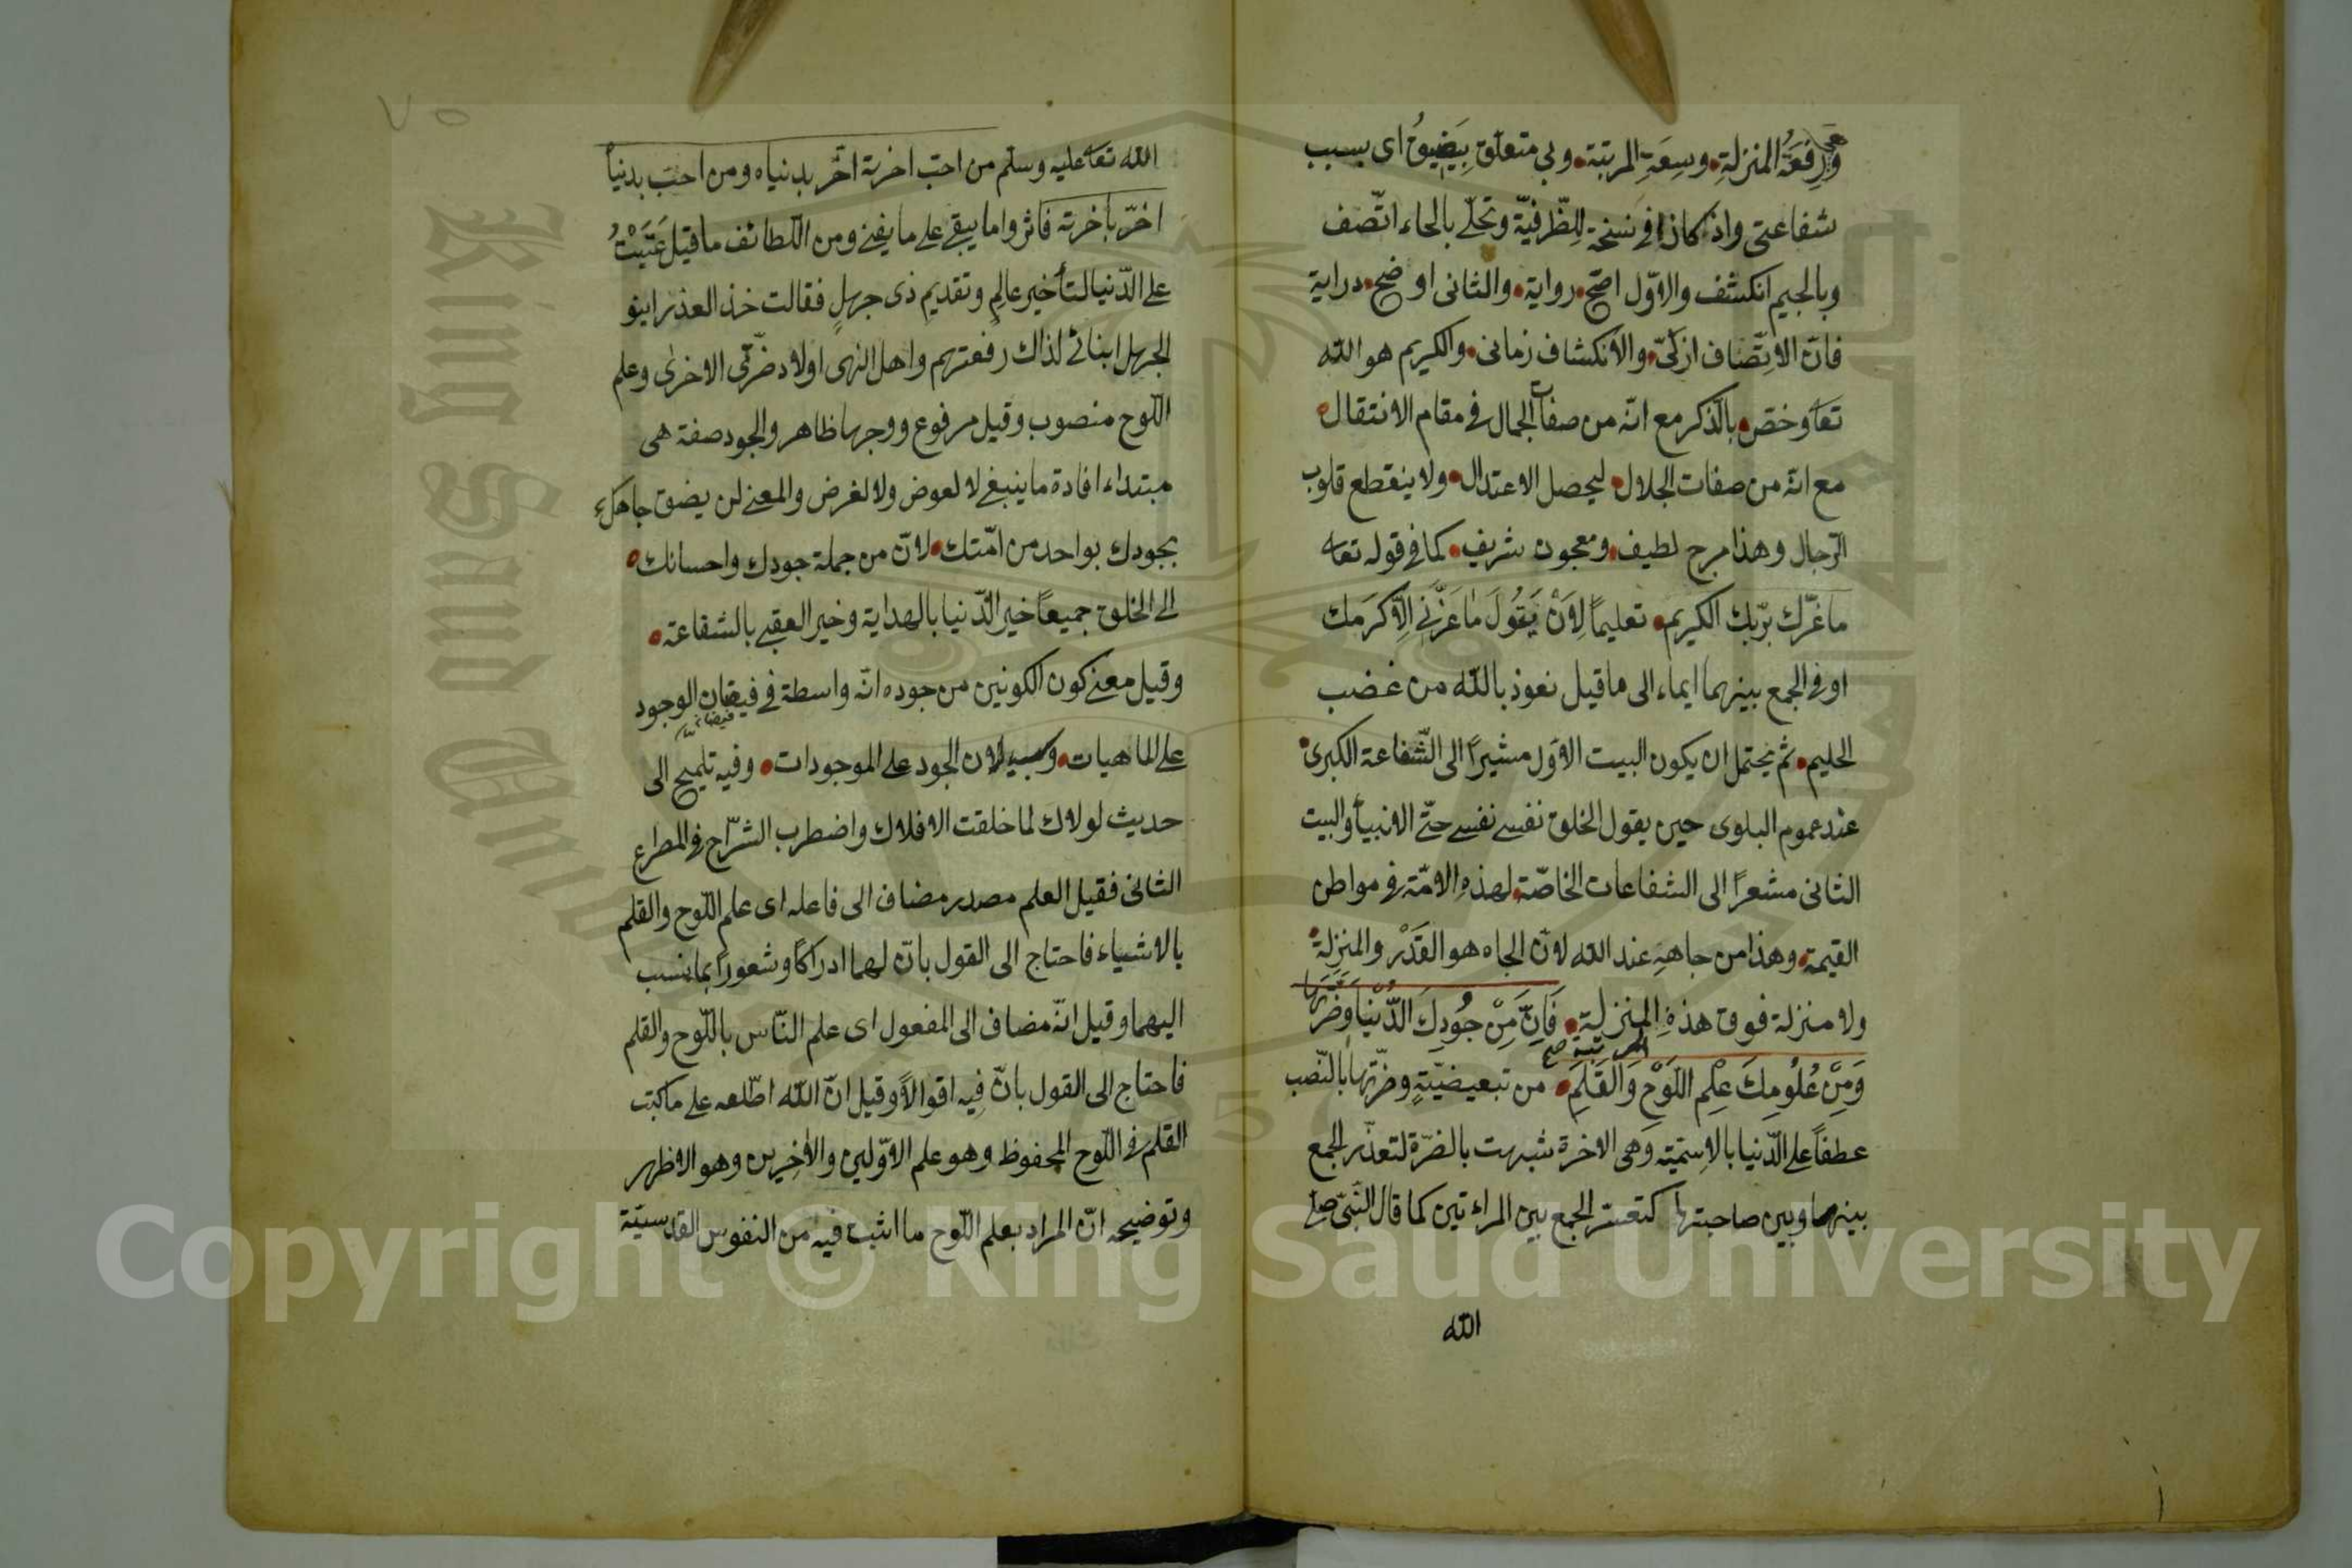 ورِفعَةُ المنزلةِ وسِعَةِ المرتبة وبي متعلق بِيَضيقُ اى بسبب
شفاعتى واذ كاذا فى نسخة للظّرفيّة وتحلّى بالحاء اتّصف
وبالجيم انكشف والاوّل اصحّ رواية والثانى اوضح دراية
فانّ الاتِّصاف ازلىّ والانكشاف زمانى والكريم هو الله
تعا وخصّ بالذكر مع انّه من صفات الجمال فى مقام الانتقال
مع انّه من صفات الجلال ليحصل الاعتدال ولا ينقطع قلوب
الرّجال وهذا مرج لطيف ومعجون شريف كما فى قوله تعا
ما غرّك بربّك الكريم تعليماً لِاَنْ يَقُولَ مَا غَرَّنِى اِلّا كَرَمك
او فى الجمع بينهما ايماء الى ما قيل نعوذ بالله من غضب
الحليم ثم يحتمل ان يكون البيت الاوّل مشيراً الى الشّفاعة الكبرى
عند عموم البلوى حين يقول الخلق نفسى نفسى حتّى الانبياء والبيت
الثانى مشعرًا الى الشفاعات الخاصّة لهذهِ الامّة فى مواطن
القيمة وهذا من جاههِ عند الله لانّ الجاه هو القَدْر والمنزلة
ولا منزلة فوق هذهِ المنزلة فَاِنَّ مِنْ جُودِكَ الدُّنْيَا وَضَرَّتَهَا
المرتبة صح
وَمِنْ عُلُومِكَ عِلْم اللَّوْحِ وَالْقَلَمِ من تبعيضيّةٍ وضرّتها بالنّصب
عطفاً على الدّنيا بالاسميّة وهى الاخرة شبهت بالضرّة لتعذّر الجمع
بينهما وبين صاحبتها كتعسّر الجمع بين المراءتين كما قال النّبىّ صلى
الله
٧٥
الله تعا عليه وسلّم من احبّ اخرته اضّر بدنياه ومن احبّ بدنيا
اضرّ بأخرته فاثروا ما يبقى على ما يفنى ومن اللّطائف ما قيل عَتَبْتُ
على الدّنيا لتأخير عالِمٍ وتقديم ذى جهلٍ فقالت خذ العذرا بنو
الجهل ابنائى لذاك رفعتهم واهل النهى اولاد ضرّتى الاخرى وعلم
اللّوح منصوب وقيل مرفوع ووجهها ظاهر والجود صفة هى
مبتداء افادة ما ينبغى لا لعوض ولا لغرض والمعنى لن يضق جاهك
بجودك بواحد من امّتك لانّ من جملة جودك واحسانك
الى الخلق جميعاً خير الدّنيا بالهداية وخير العقبى بالشفاعة
وقيل معنى كون الكونين من جوده انّه واسطة فى فيضان الوجود
على الماهيات لان الجود على الموجودات وفيه تلميح الى
حديث لولاك لما خلقت الافلاك واضطرب الشرّاح فى المصراع
الثانى فقيل العلم مصدر مضاف الى فاعله اى علم اللّوح والقلم
بالاشياء فاحتاج الى القول بانّ لهما ادراكاً وشعوراً بما نسب
اليهما وقيل انّه مضاف الى المفعول اى علم النّاس باللّوح والقلم
فاحتاج الى القول بانّ فيه اقوالاً وقيل انّ الله اطّلعه على ما كتب
القلم فى اللّوح المحفوظ وهو علم الاوّلين والاخِرين وهو الاظهر
وتوضيحه انّ المراد بعلم اللّوح ما اثبت فيه من النفوس القدسيّة
Copyright © King Saud University